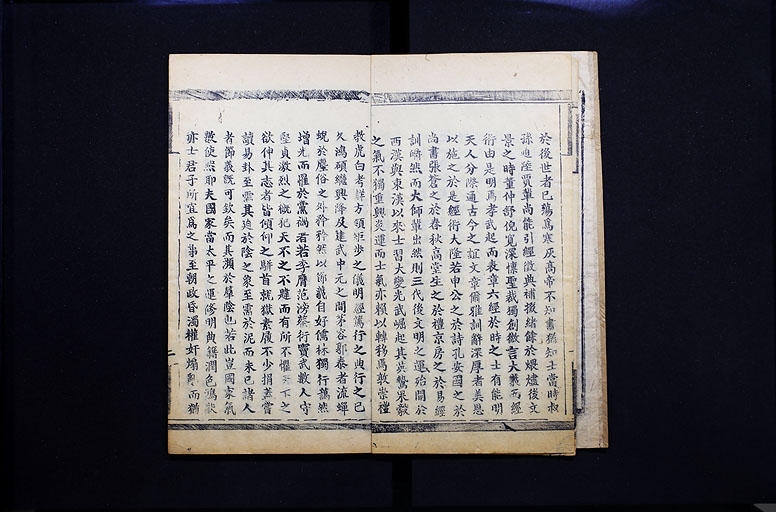 於後世者已竭爲寒灰高帝不知書猶知士當時叔
孫通陸賈輩尚能引經徵典補掇緒餘於煨爐後文
景之時董仲舒倪寬深懷聖裁獨創微言大義而經
術由是明焉孝武起而表章六經於時之士有能明
天人分際通古今之誼文章爾雅訓辭深厚者美恩
以施之於是經術大陸若申公之於詩孔安國之於
尚書張蒼之於春秋高堂生之於禮京房之於易經
訓疄然而大師輩出然則三代後文明之運殆開於
西漢與東漢以來士習大變光武崛起其英鷙果毅
之氣不獨重興炎運而士氣亦賴以轉移焉敦崇禮
教虎白考詳方領矩步之儀明經篤行之典行之已
久鴻碩繼興降及建武中元之間茅容郭泰者流蟬
蛻於塵俗之外矜矜然以節義自好儒林獨行藹然
增光而羅於黨禍者若李膺范滂蔡衍竇武數人守
堅貞激烈之概犯天下之不韙而有所不懼天下之
欲伸其志者皆傾仰之駢首就獄素履不少捐蓋嘗
讀易卦至需其逈於陰之象至需於泥而來已諸人
者節義既可欽矣而其瀕於羣陰也若此豈國家氣
數使然耶夫國家當太平之運修明典籍潤色鴻猷
亦士君子所宜爲之第至朝政昏濁權奸煽而猶